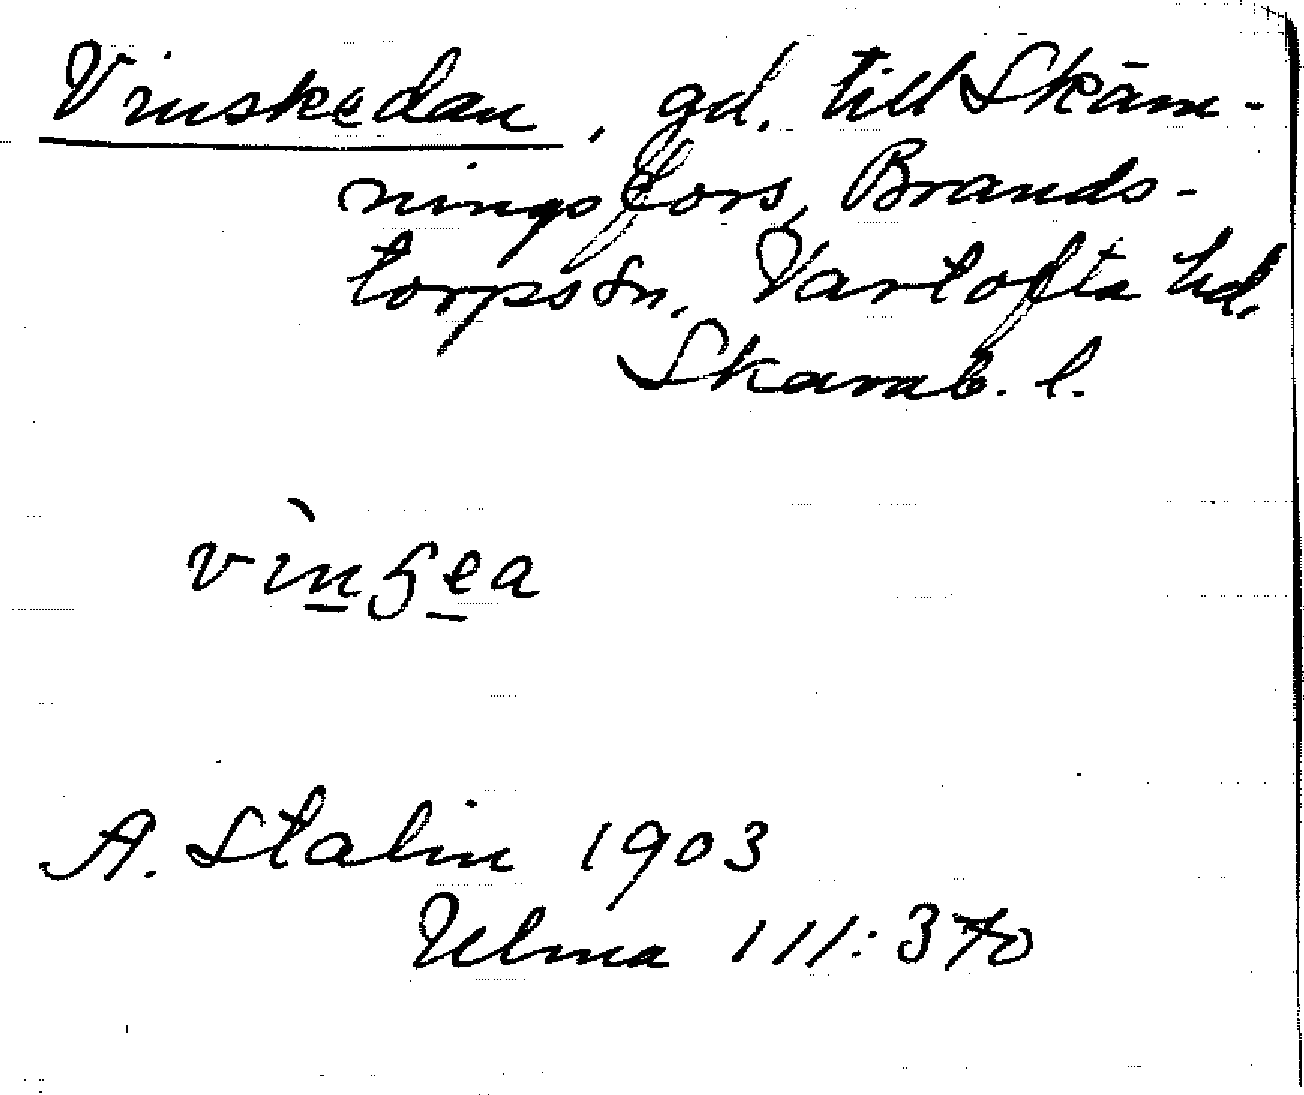 Vinskedan, gd. till Skäm-
ningsfors, Brands-
torps sn, Vartofta hd.
Skarab. l.
vìnʂea
A. Stalin 1903
Ulma 111:370